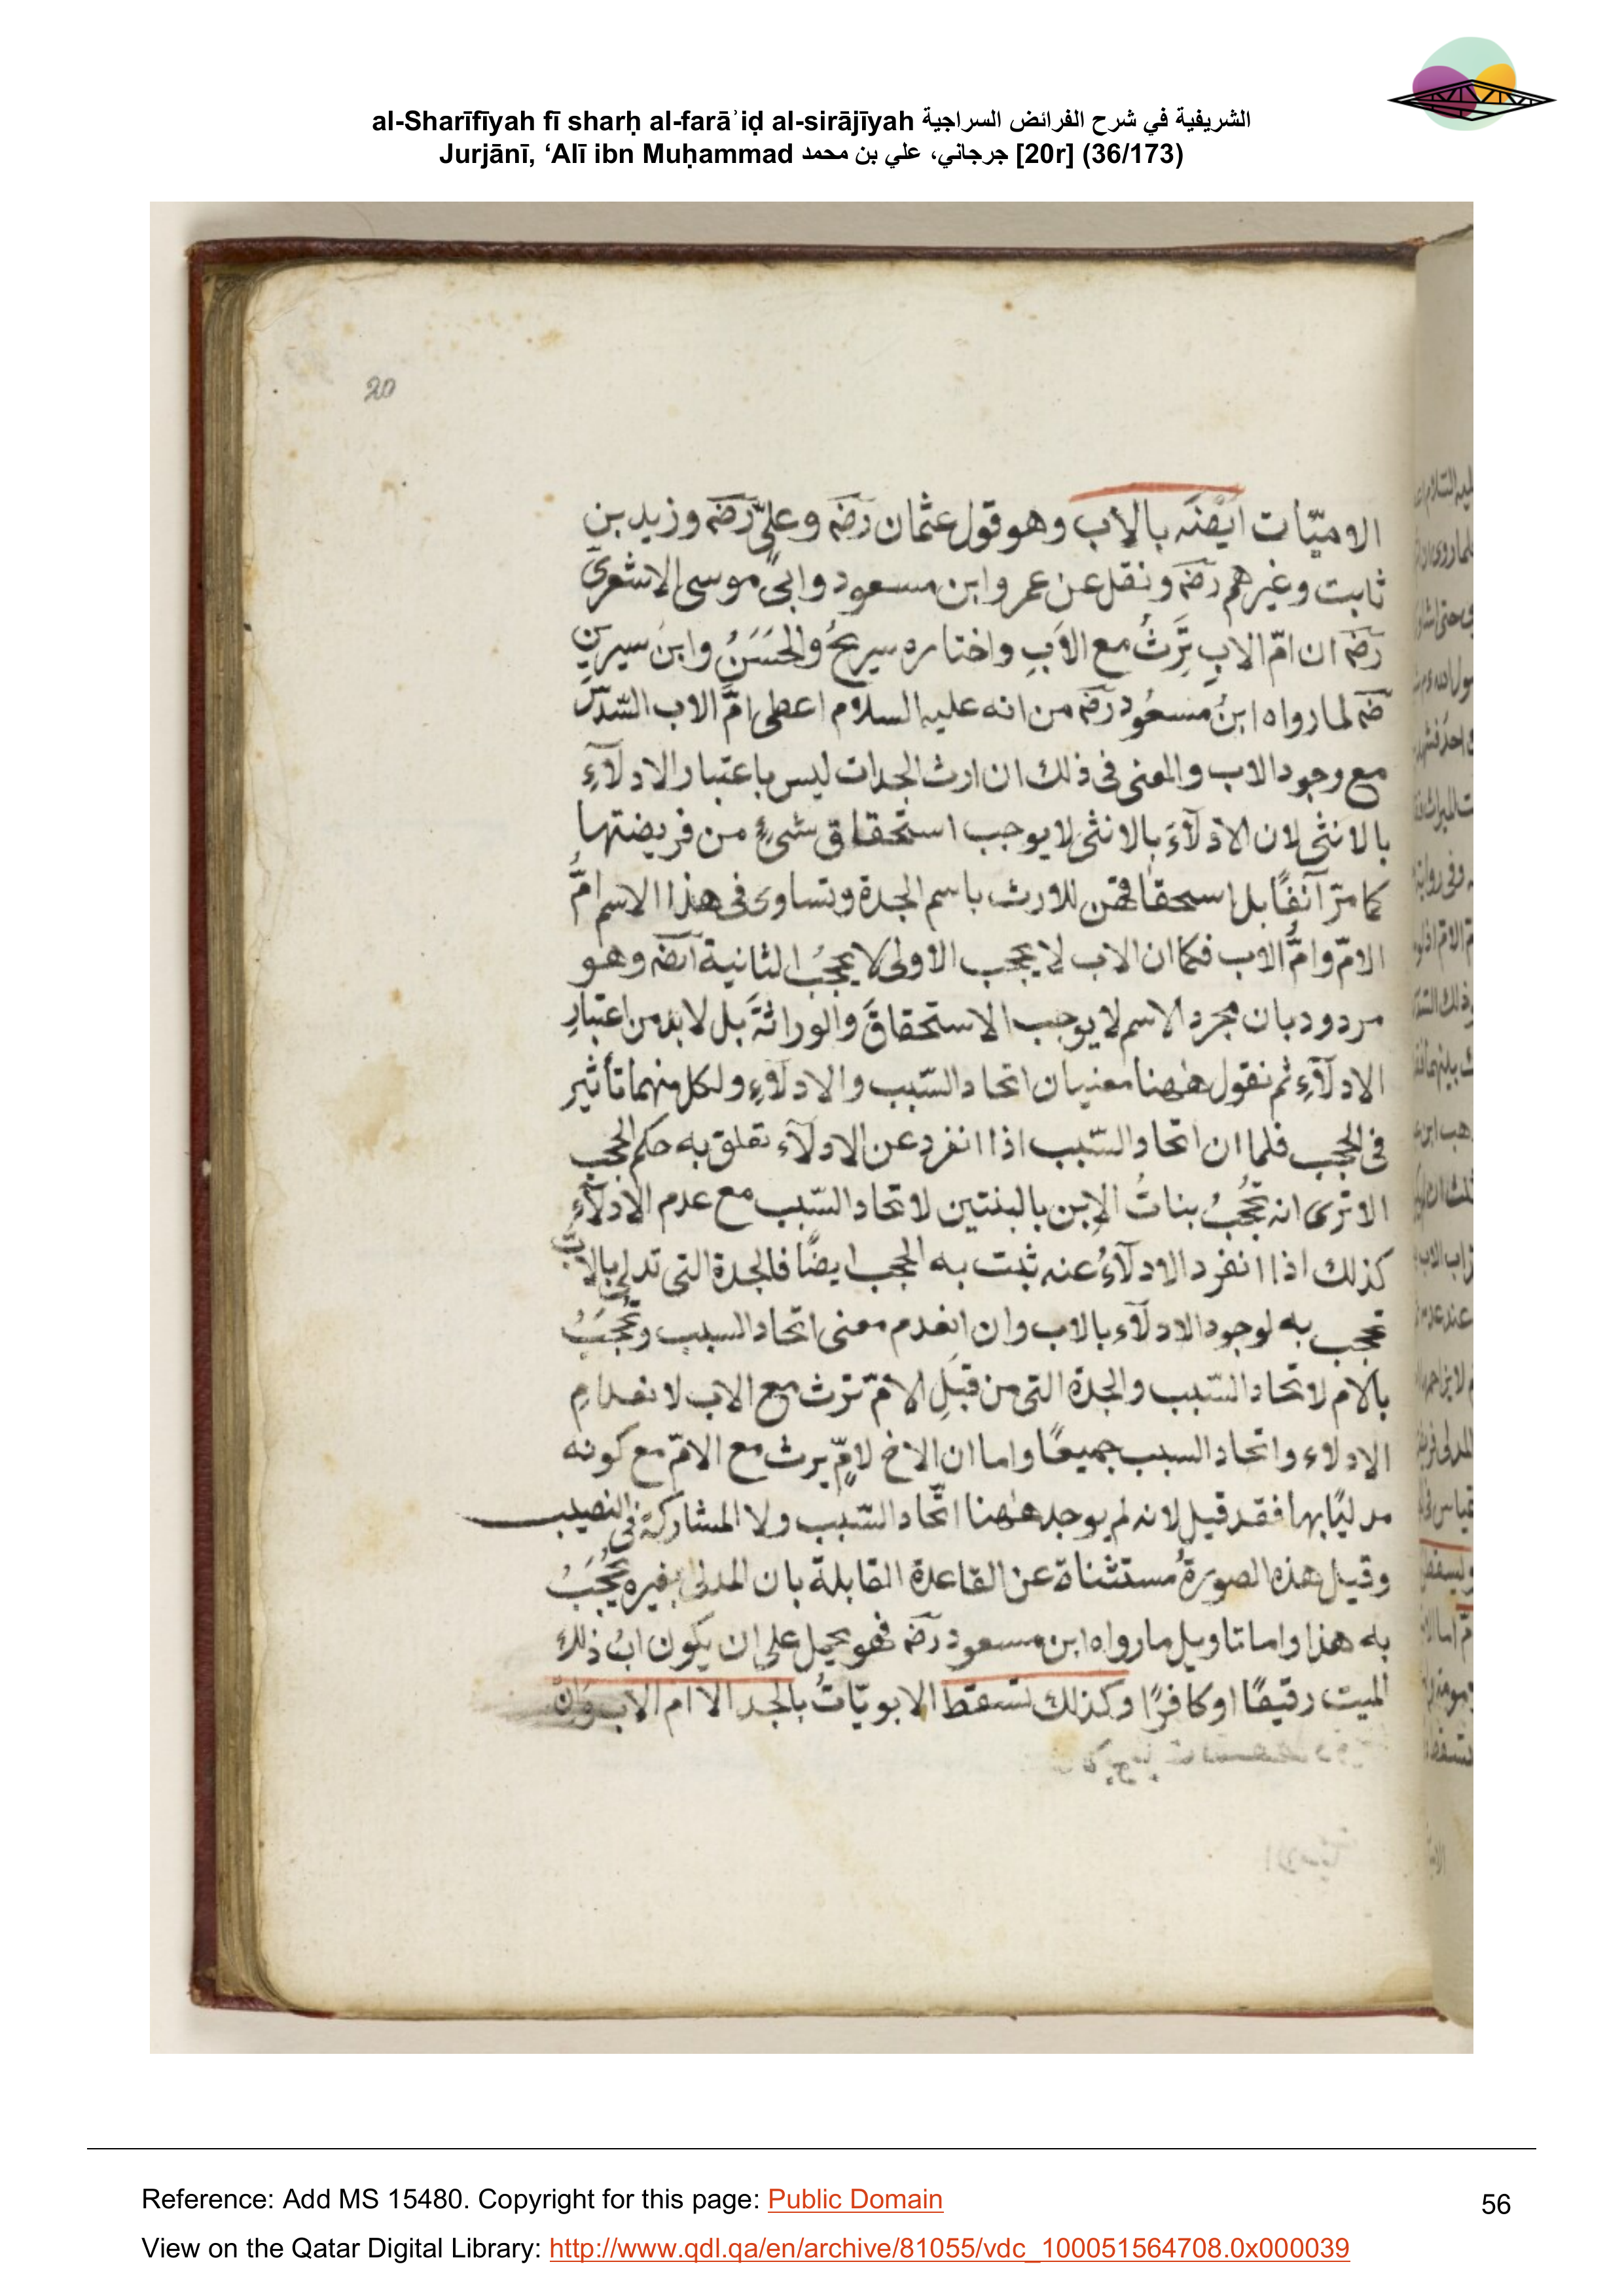 al-Sharīfīyah fī sharḥ al-farāʾiḍ al-sirājīyah الشريفية في شرح الفرائض السراجية
Jurjānī, ‘Alī ibn Muḥammad جرجاني، علي بن محمد [20r] (36/173)
20
الاميّات ايضَه بالاب وهو قول عثمان رضه وعليّ رضه وزيد بن
ثابت وغيرهم رضه ونقل عن عمر وابن مسعود وابى موسى الاشعرى
رضه ان امّ الاب تَرِثُ مع الاَبِ واختاره سريحُ والحَسَنُ وابن سيرين
رضه لما رواه ابنُ مسعُود رضه من انه عليه السلام اعطى امَّ الاب السّدسَ
مع وجود الاب والمعنى فى ذلك ان ارث الجدات ليس باعتبار الادلآءِ
بالانثى لان الادلآءَ بالانثى لا يوجب استحقاق شئٍ من فريضتها
كما مرّ آنفًا بل اسحقاقهن للارث باسم الجدة وتساوى فى هذا الاسم امُّ
الامّ وامُّ الاب فكما ان الاب لا يحجب الاولى لا يحجبُ الثانية ايضه وهو
مردود بان مجرد الاسم لا يوجب الاستحقاقَ والوراثةَ بل لا بد من اعتبارِ
الادلآءِ ثم نقول ههنا معنيان اتحاد السّبب والادلآءِ ولكل منهما تأثير
فى الحجب فلما ان اتحاد السّبب اذا انفرد عن الادلآء تعلق به حكم الحجب
الا ترى انه تحجُبُ بناتُ الابن بالبنتين لاتحاد السّبب مع عدم الادلآءِ
كذلك اذا انفرد الادلآءُ عنه ثبت به الحجب ايضًا فالجدة التى تدلى بالابِ
تحجب به لوجود الادلآء بالاب وان انعدم معنى اتحاد السبب وتحجَبُ
بالام لاتحاد السّبب والجدة التى من قبَلِ الامّ ترث مع الاب لانعدامِ
الادلاء واتحاد السبب جميعًا واما ان الاخ لامٍّ يرث مع الامّ مع كونه
مدليًا بها فقد قيل لانه لم يوجد ههنا اتّحاد السّبب ولا المشاركة فى النصيب
وقيل هذه الصورةُ مستثناة عن القاعدة القابلة بان المدلى بغيره يُحْجَبُ
به هذا واما تاويل ما رواه ابن مسعود رضه فهو يحمل على ان يكون ابُ ذلك
الميت رقيقًا او كافرًا وكذلك تسقط الابويّاتُ بالجد الا ام الاب وَاِنْ
Reference: Add MS 15480. Copyright for this page: Public Domain
56
View on the Qatar Digital Library: http://www.qdl.qa/en/archive/81055/vdc_100051564708.0x000039